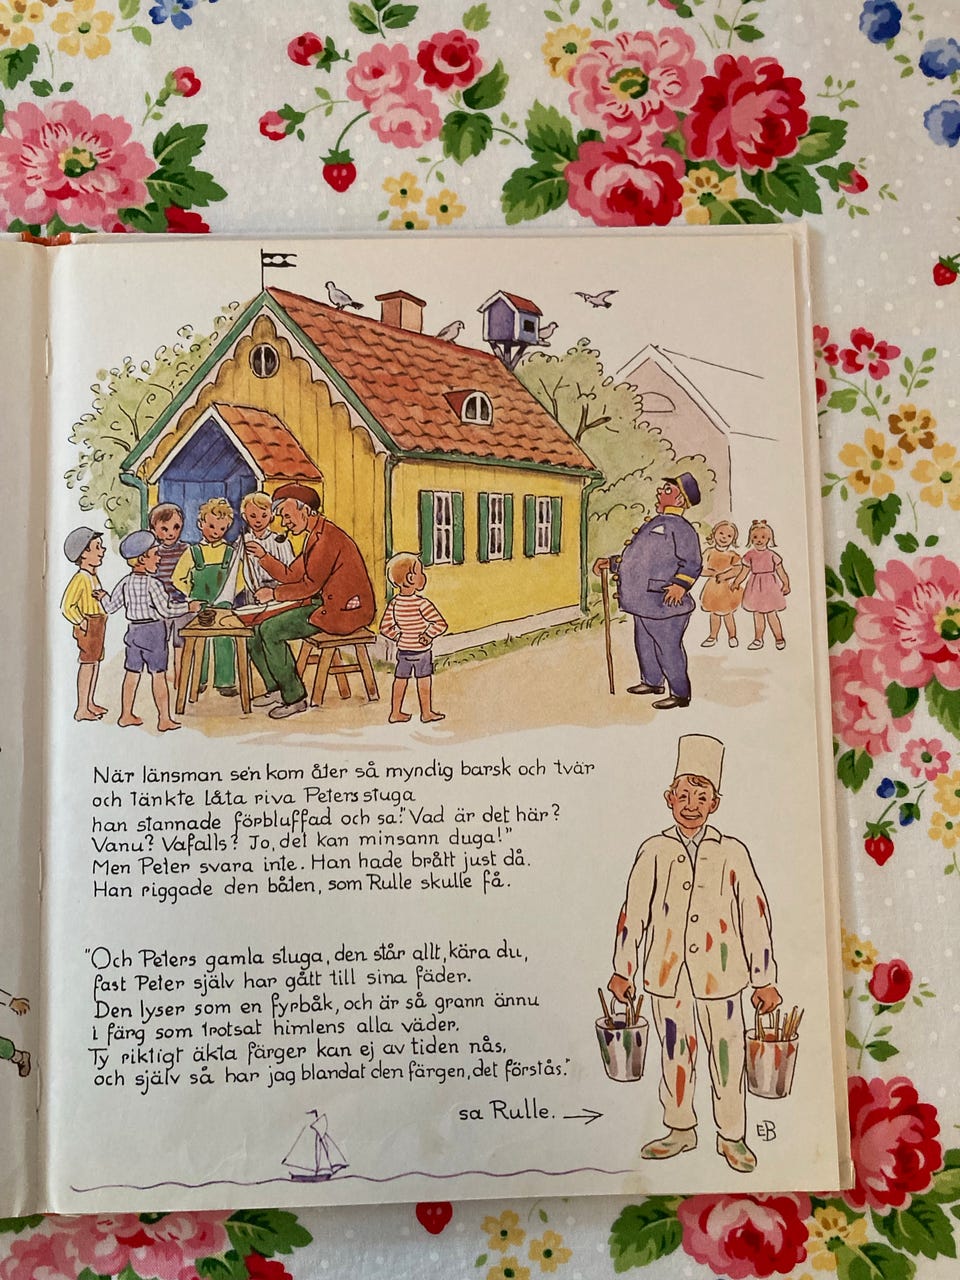 När länsman se'n kom åter så myndig barsk och tvär
och tänkte låta riva Peters stuga
han stannade förbluffad och sa: "Vad är det här?
Vanu? Vafalls? Jo, det kan minsann duga!"
Men Peter svara inte. Han hade brått just då.
Han riggade den båten, som Rulle skulle få.
"Och Peters gamla stuga, den står allt, kära du,
fast Peter själv har gått till sina fäder.
Den lyser som en fyrbåk, och är så grann ännu
i färg som trotsat himlens alla väder.
Ty riktigt äkta färger kan ej av tiden nås,
och själv så har jag blandat den färgen, det förstås."
sa Rulle. →
EB